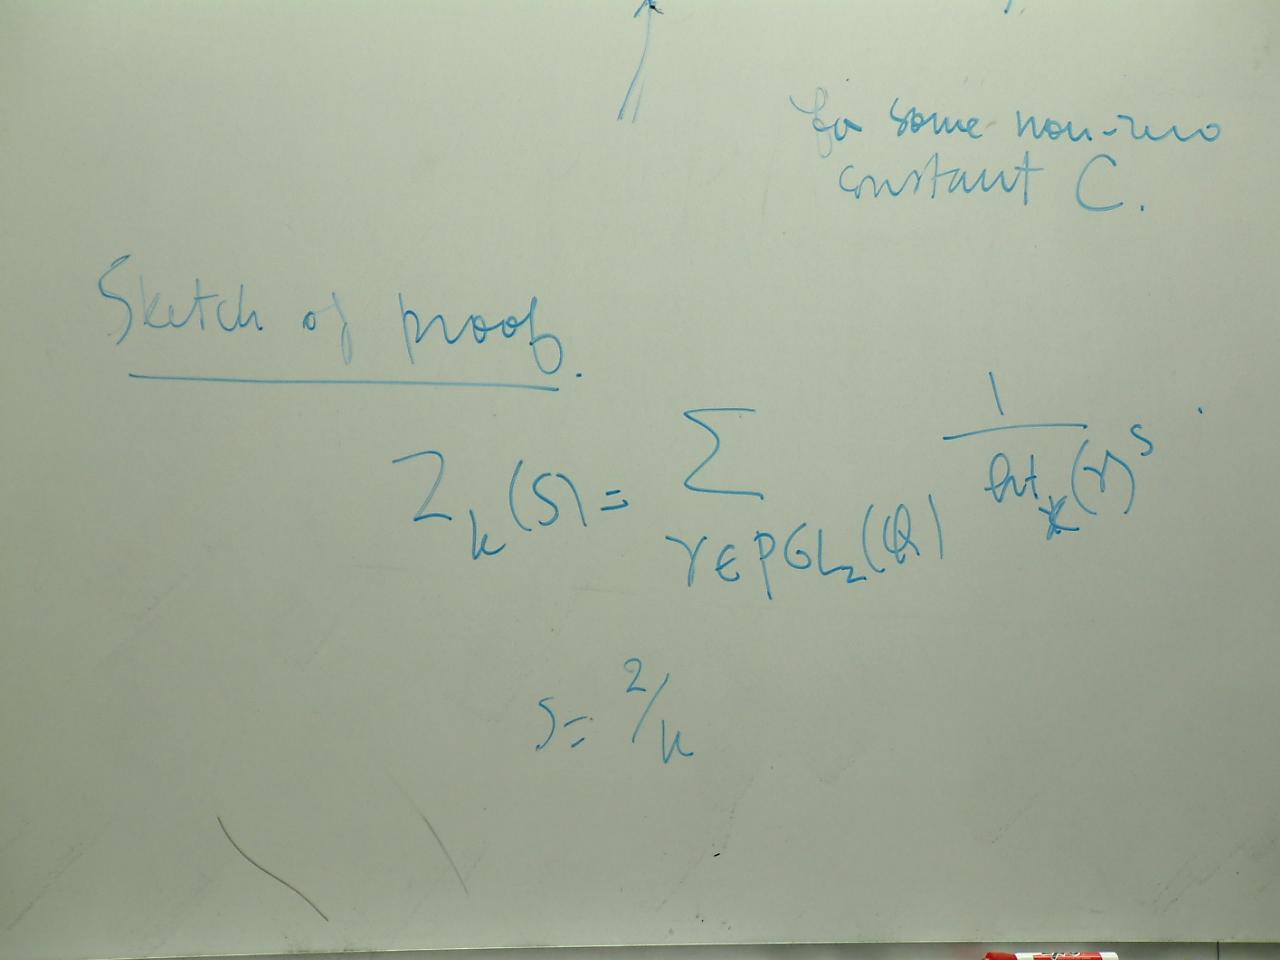 for some non-zero
constant C.
Sketch of proof.
Z_k(s) = Σ_{γ∈PGL_2(Q)} 1/ht_k(γ)^s.
s = 2/k